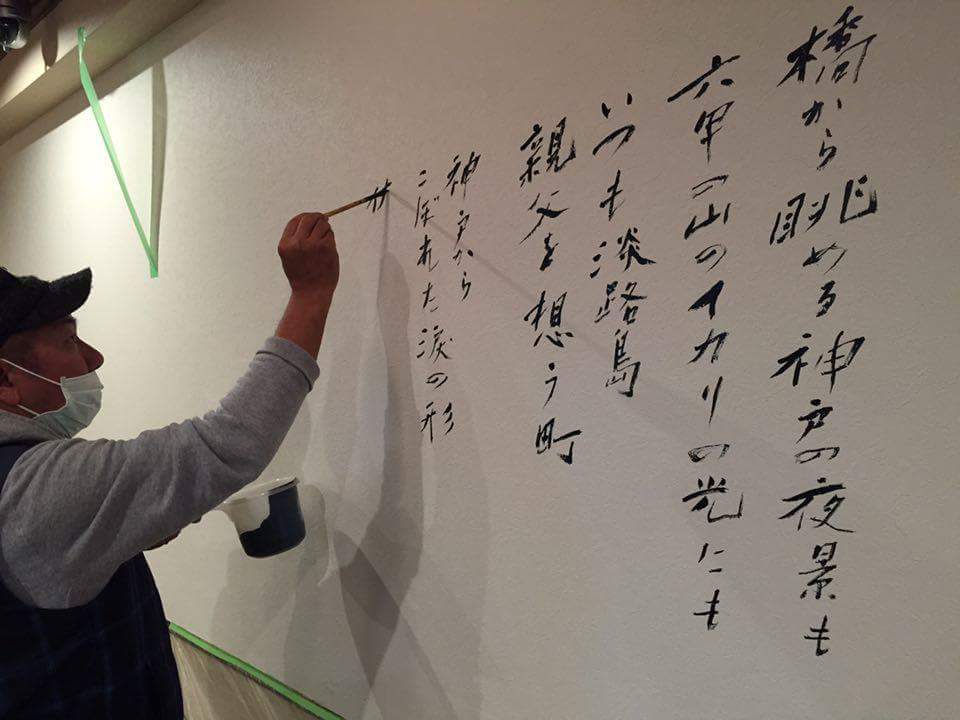 橋から眺める神戸の夜景も
六甲の山のイカリの光にも
いつも淡路島
親父を想う町
神戸から
こぼれた涙の形